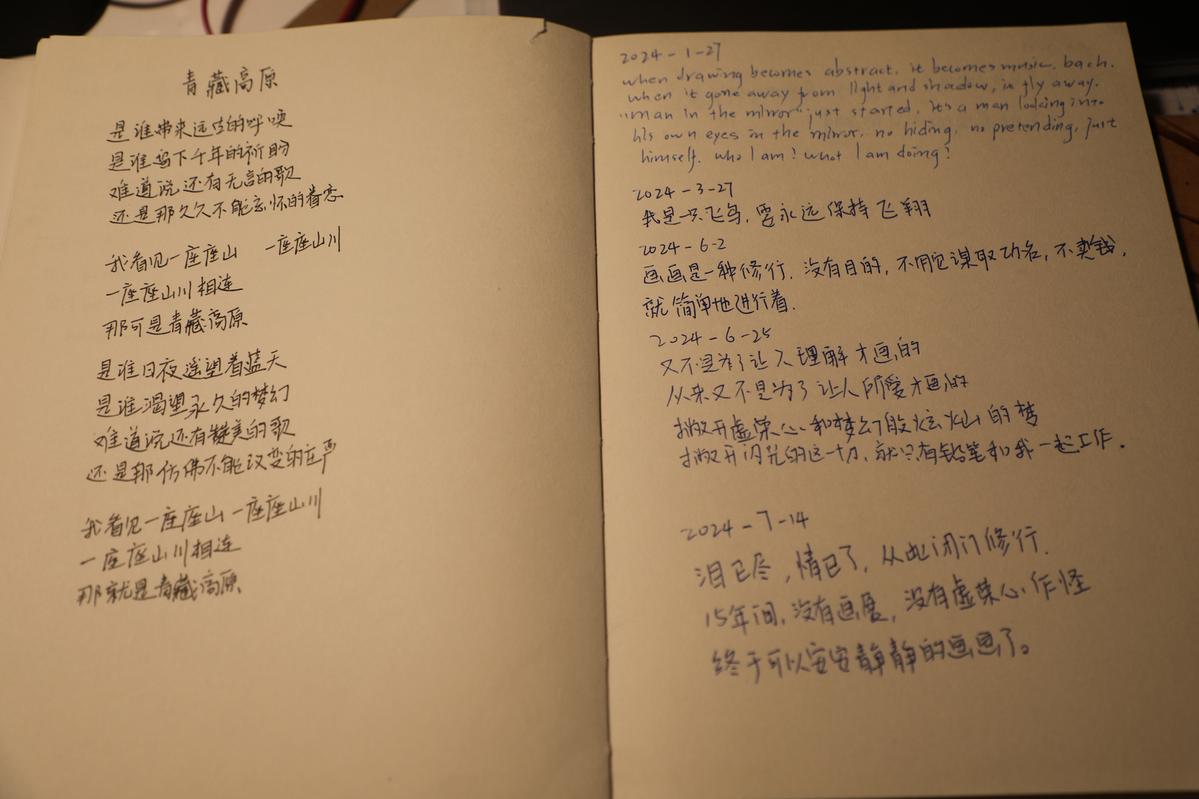 青藏高原
是谁带来远古的呼唤
是谁留下千年的祈盼
难道说还有无言的歌
还是那久久不能忘怀的眷恋
我看见一座座山 一座座山川
一座座山川相连
那可是青藏高原
是谁日夜遥望着蓝天
是谁渴望永久的梦幻
难道说还有赞美的歌
还是那仿佛不能改变的庄严
我看见一座座山 一座座山川
一座座山川相连
那就是青藏高原
2024-1-27
when drawing becomes abstract. it becomes music. bach.
when it gone away from light and shadow, is fly away.
"man in the mirror" just started, it's a man looking into
his own eyes in the mirror, no hiding, no pretending, just
himself. who I am? what I am doing?
2024-3-27
我是一只飞鸟,要永远保持飞翔
2024-6-2
画画是一种修行.没有目的,不用它谋取功名,不卖钱,
就简单地进行着.
2024-6-25
又不是为了让人理解才画的
从来又不是为了让人所爱才画的
撇开虚荣心和梦幻般炫灿的梦
撇开闪亮的这一切,就只有铅笔和我一起工作.
2024-7-14
泪已尽,情已了,从此闭门修行.
15年间,没有画展,没有虚荣心作怪
终于可以安安静静的画画了。